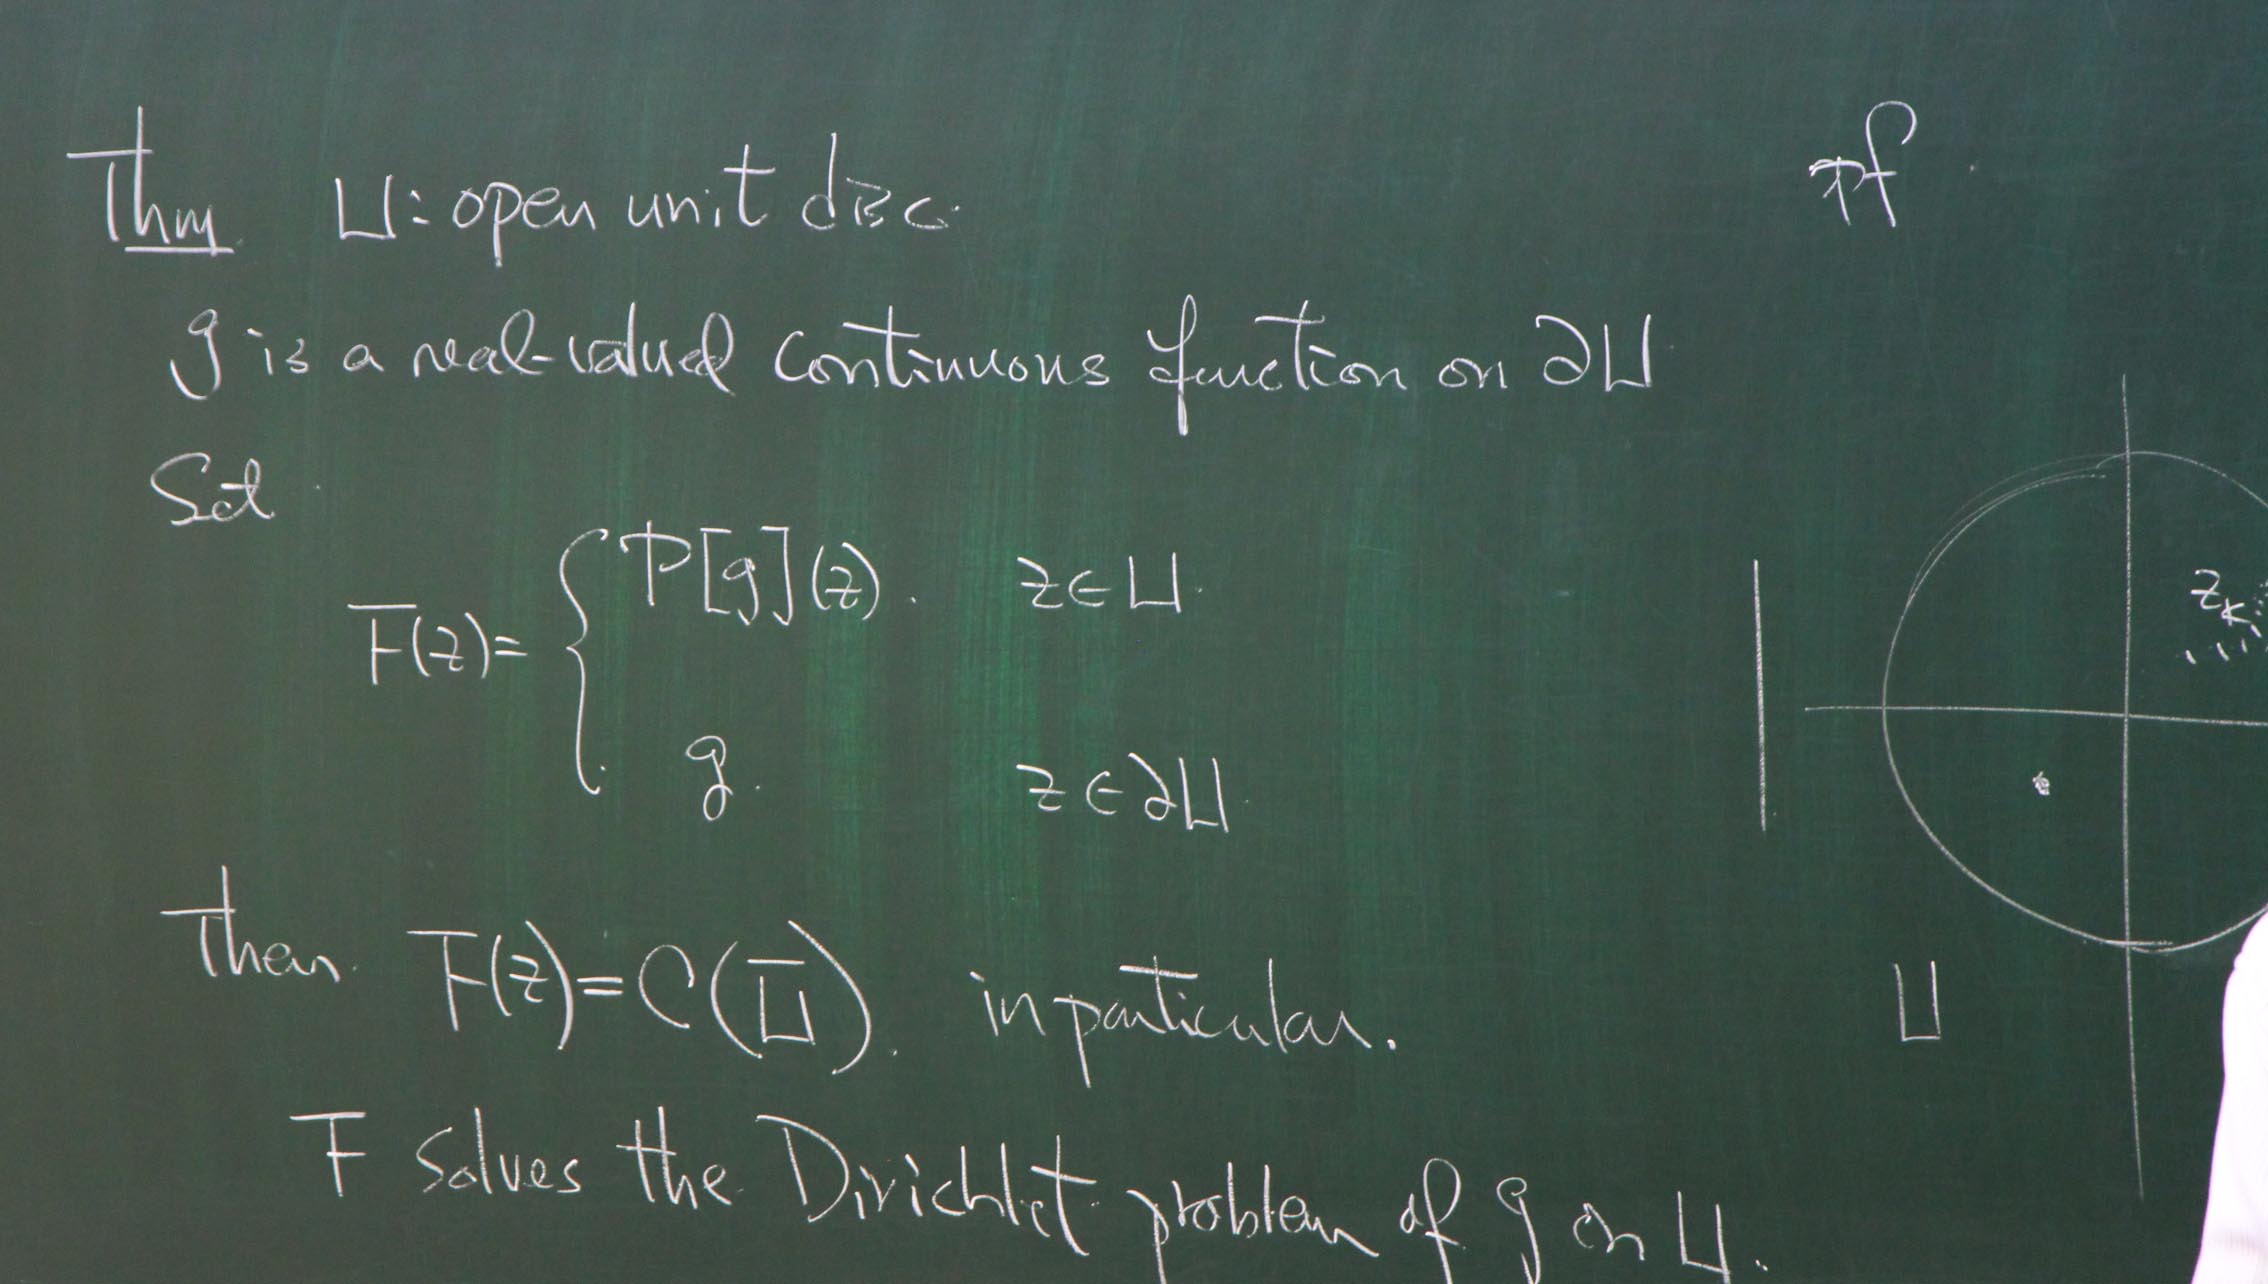 Thm U: open unit disc.
g is a real-valued continuous function on ∂U
Set
F(z)= { P[g](z). z∈U.
g. z∈∂U.
Then F(z)=C(U̅). in particular.
F solves the Dirichlet problem of g on U.
pf
z_k
U